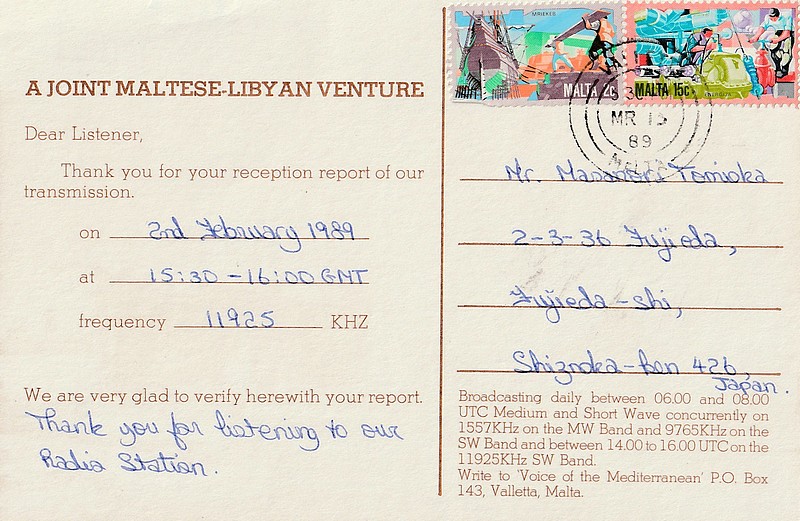 A JOINT MALTESE-LIBYAN VENTURE
Dear Listener,
Thank you for your reception report of our
transmission.
on 2nd February 1989
at 15:30 - 16:00 GMT
frequency 11925 KHZ
We are very glad to verify herewith your report.
Thank you for listening to our
Radio Station.
MALTA 2c
MALTA 15c
MR 13
89
MALTA
Mr. Masanori Tomioka
2-3-36 Fujieda,
Fujieda-shi,
Shiznoka-ken 426,
Japan.
Broadcasting daily between 06.00 and 08.00
UTC Medium and Short Wave concurrently on
1557KHz on the MW Band and 9765KHz on the
SW Band and between 14.00 to 16.00 UTC on the
11925KHz SW Band.
Write to 'Voice of the Mediterranean' P.O. Box
143, Valletta, Malta.